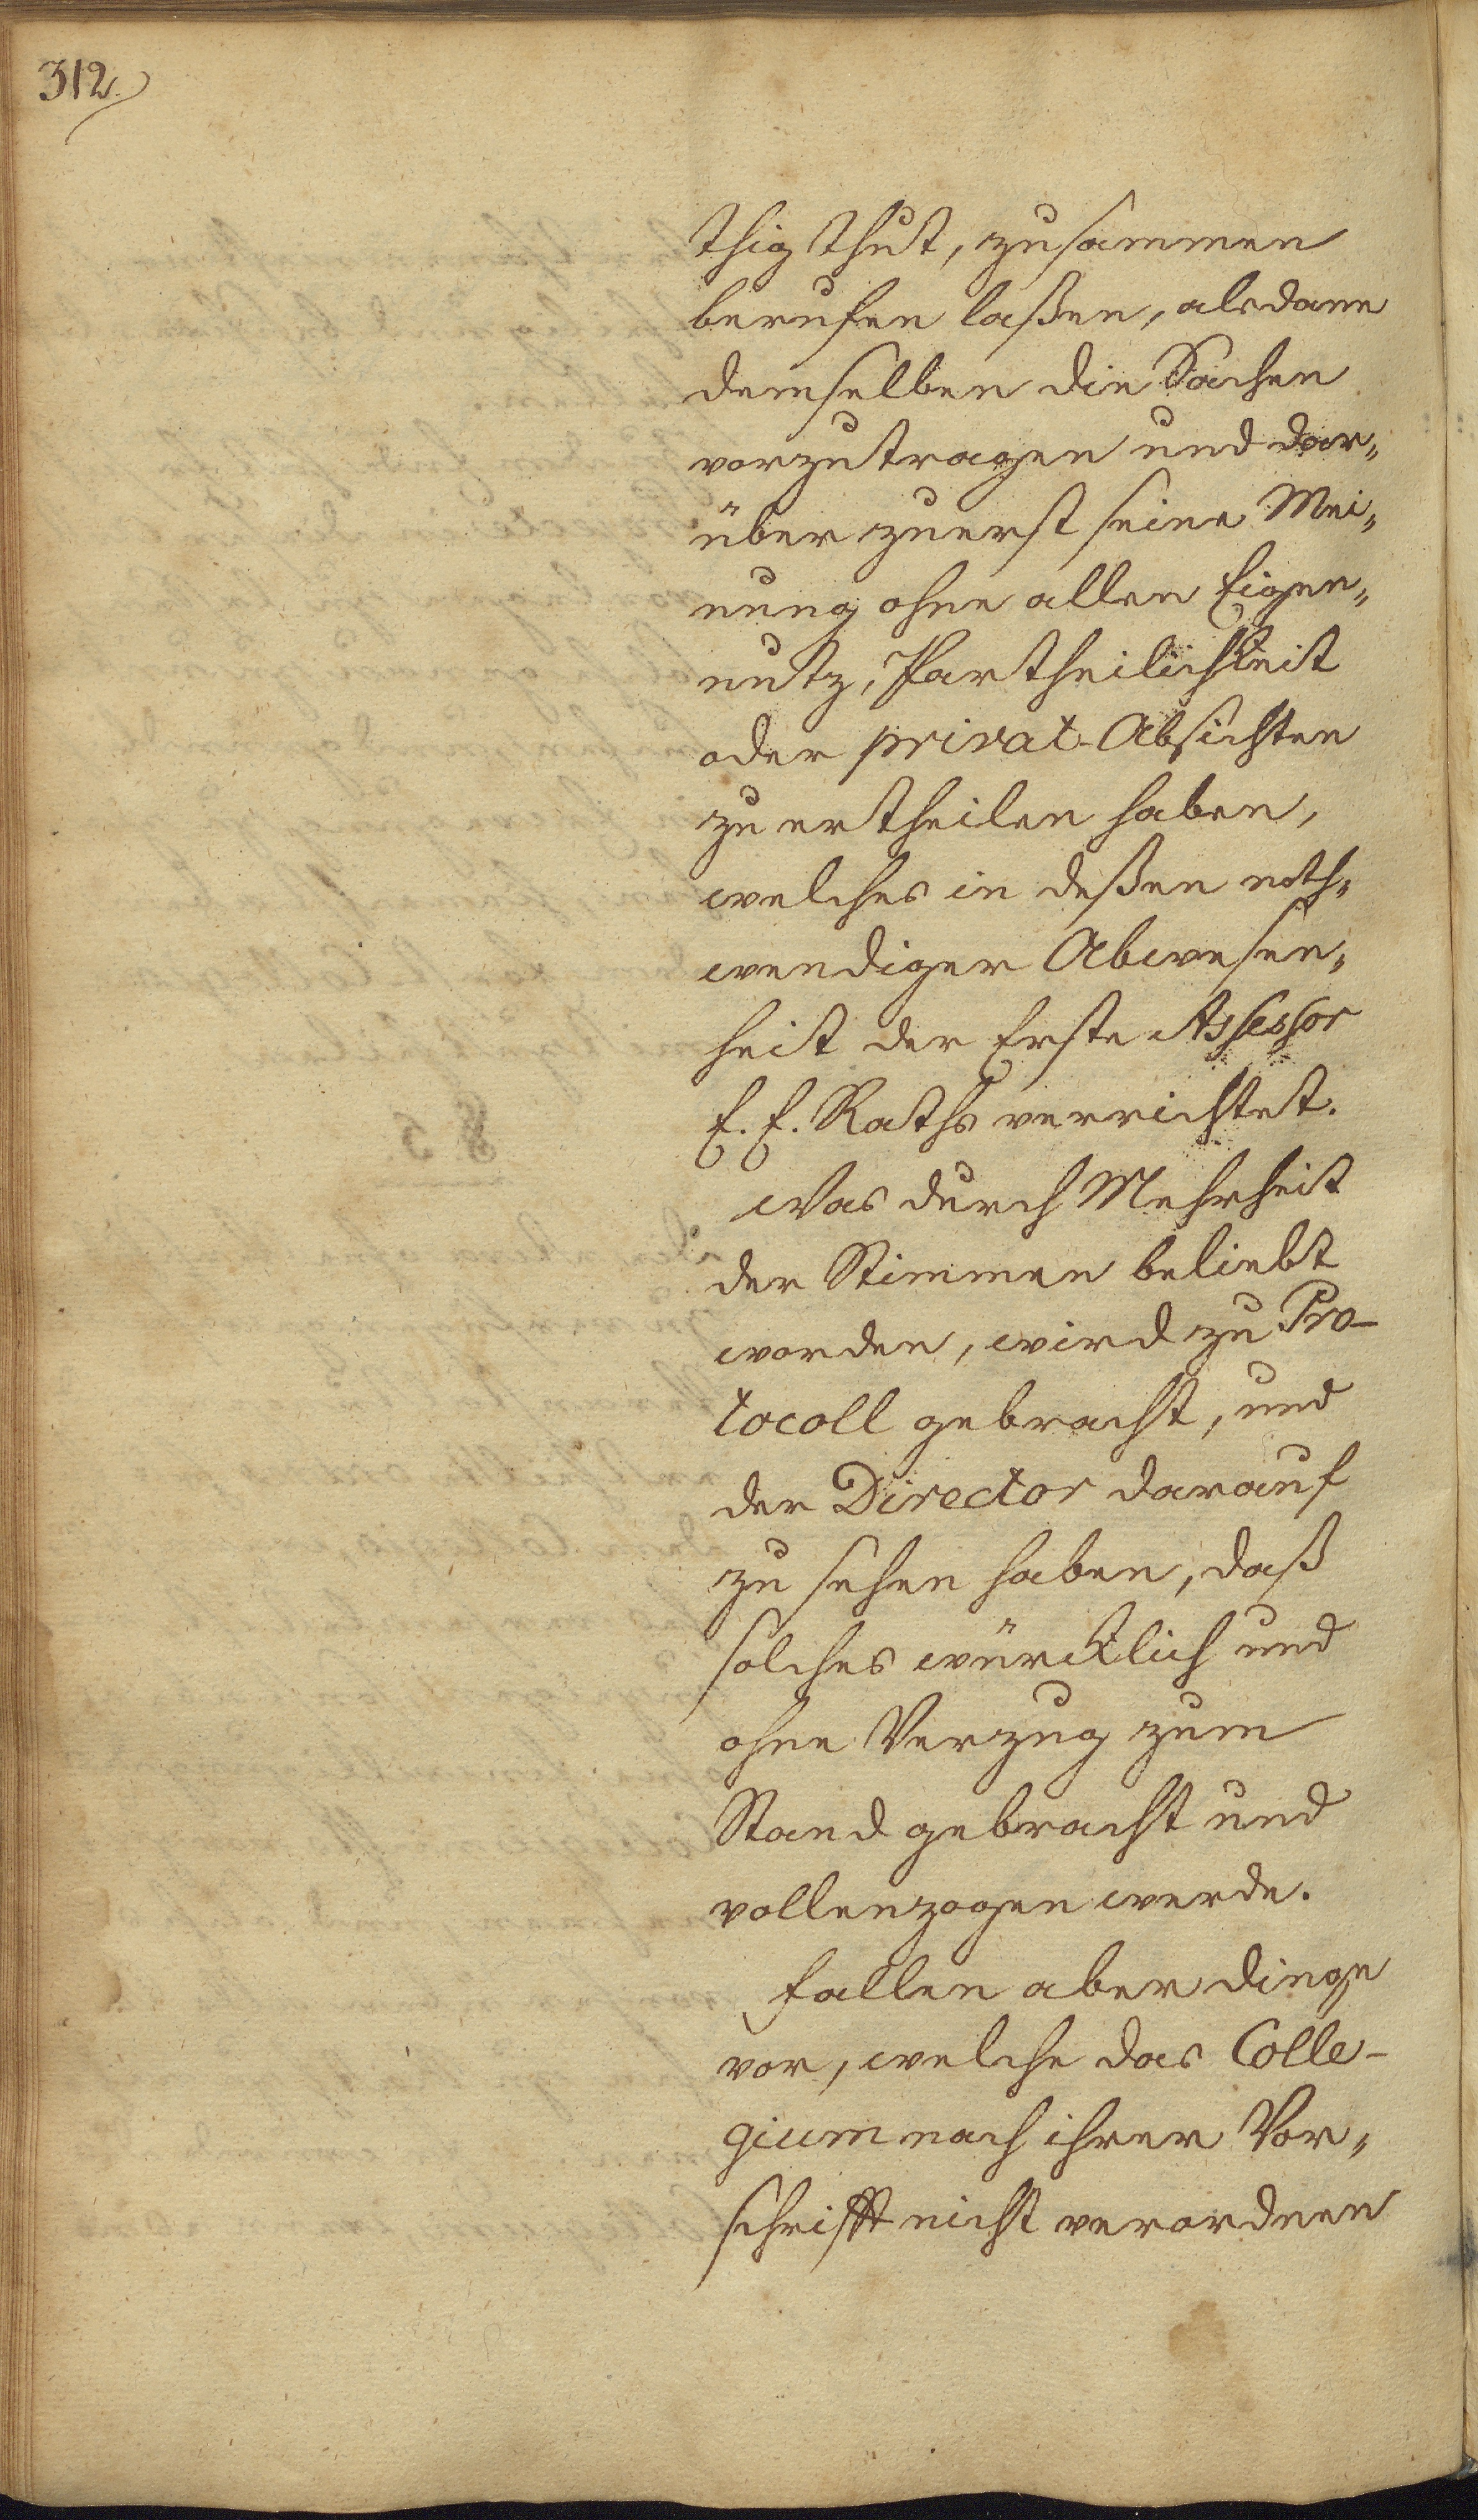 312.
thig thut, zusammen
berufen laßen, alsdann
demselben die Sachen
vorzutragen und dar„
über zuerst seine Mei„
nung ohne allen Eigen„
nutz, Partheilichkeit
oder privat-Absichten
zu ertheilen haben,
welches in deßen noth„
wendiger Abwesen„
heit der Erste Assessor
E. E. Raths verrichtet.
Was durch Mehrheit
der Stimmen beliebt
worden, wird zu Pro-
tocoll gebracht, und
der Director darauf
zu sehen haben, daß
solches würcklich und
ohne Verzug zum
Stand gebracht und
vollenzogen werde.
Fallen aber dinge
vor, welche das Colle-
gium nach ihrer Vor„
schrifft nicht verordnen